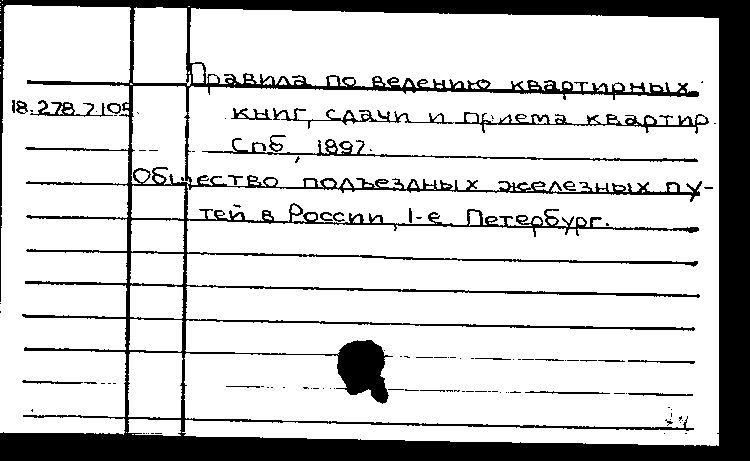 Правила по ведению квартирных
18.278.7.105 книг, сдачи и приема квартир.
Спб, 1897.
Общество подъездных железных пу-
тей в России, 1-е. Петербург.